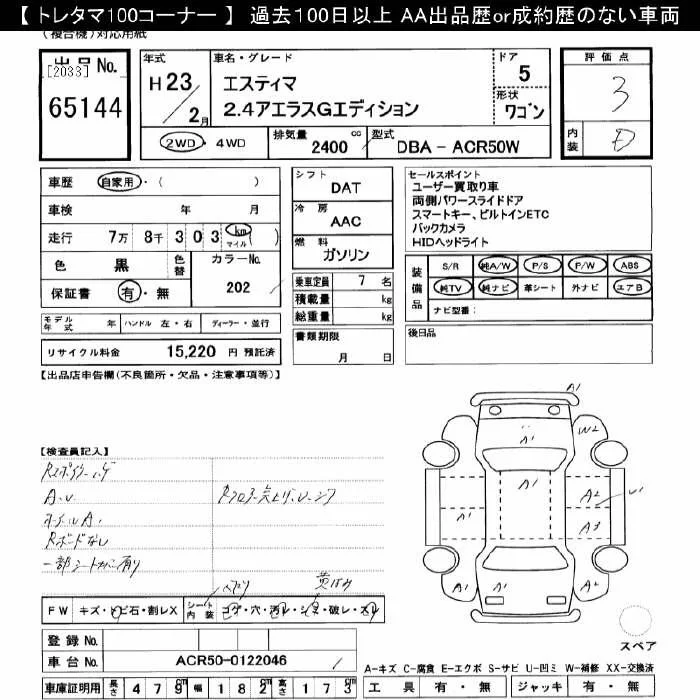 【 トレタマ100コーナー 】 過去100日以上 AA出品歴or成約歴のない車両
(複合機)対応用紙
出品No.
[2033]
65144
年式
H 23/2月
車名・グレード
エスティマ
2.4アエラスGエディション
ドア
5
形状
ワゴン
評価点
3
内装
D
2WD・4WD
排気量 2400 cc
型式 DBA - ACR50W
車歴 自家用・( )
車検 年 月
走行 7万 8千 3 0 3 km マイル ( )
色 黒 色替 カラーNo. 202
保証書 有・無
モデル年式 年 ハンドル 左・右 ディーラー・並行
リサイクル料金 15,220 円 預託済
シフト
DAT
冷房
AAC
燃料
ガソリン
乗車定員 7 名
積載量 kg
総重量 kg
書類期限
月 日
セールスポイント
ユーザー買取り車
両側パワースライドドア
スマートキー、ビルトインETC
バックカメラ
HIDヘッドライト
装備品
S/R 純A/W P/S P/W ABS
純TV 純ナビ 革シート 外ナビ エアB
ナビ型番:
後日品
【出品店申告欄(不良箇所・欠品・注意事項等)】
【検査員記入】
A・U
Rボードなし
一部シートカバー有り
A1
A1
W2
A1
A2
U1
A3
A1
A1
スペア
FW キズ・トビ石・割レX シート内装 コゲ・穴・汚レ・シミ・破レ・スレ
登録No.
車台No. ACR50-0122046
車庫証明用 長さ 4 7 9 cm 幅 1 8 2 cm 高さ 1 7 3 cm
A-キズ C-腐食 E-エクボ S-サビ U-凹ミ W-補修 XX-交換済
工具 有・無 ジャッキ 有・無